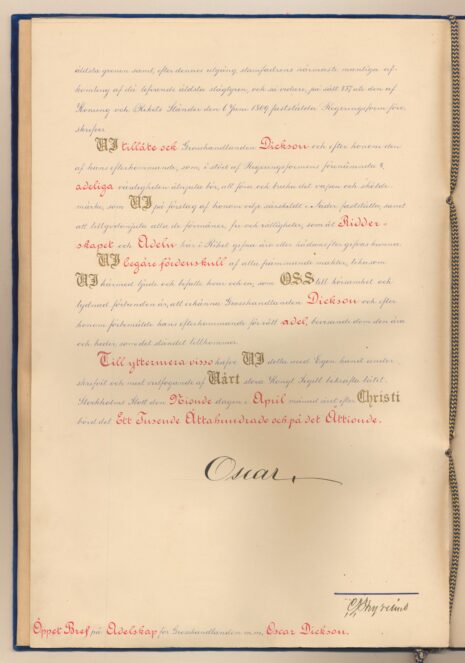 äldsta grenen samt, efter dennes utgång stamfadrens närmaste manliga af-
komling af då lefvande äldsta slägtgren, och så vidare, på sätt § 37 uti den af
Konung och Rikets Ständer den 6 Juni 1809 fastställda Regeringsform före-
skrifver.
VJ tillåte ock Grosshandlanden Dickson och efter honom den
af hans efterkommande, som, i stöd af Regeringsformens förenämnda §,
adeliga värdigheten åtnjuta bör, att föra och bruka det vapen och sköldе-
märke, som VJ på förslag af honom vilja särskildt i Nåder fastställa, samt
att tillgodonjuta alla de förmåner, fri och rättigheter, som åt Ridder-
skapet och Adeln här i Riket gifna äro eller hädanefter gifvas kunna.
VJ begäre fördenskull af alla främmande makter, likasom
VJ härmed bjude och befalle hvar och en, som OSS till hörsamhet och
lydnad förbunden är, att erkänna Grosshandlanden Dickson och efter
honom förbemälde hans efterkommande för rätt adel, bevisande dem den ära
och heder, som det ståndet tillkommer.
Till yttermera visso hafve VJ detta med Egen hand under-
skrifvit och med vidfogande af Vårt stora Kongl. Sigill bekräfta låtit.
Stockholms Slott den Nionde dagen i April månad året efter Christi
börd det Ett Tusende Åttahundrade och på det Åttionde.
Oscar.
Öppet Bref på Adelskap för Grosshandlanden m. m. Oscar Dickson.